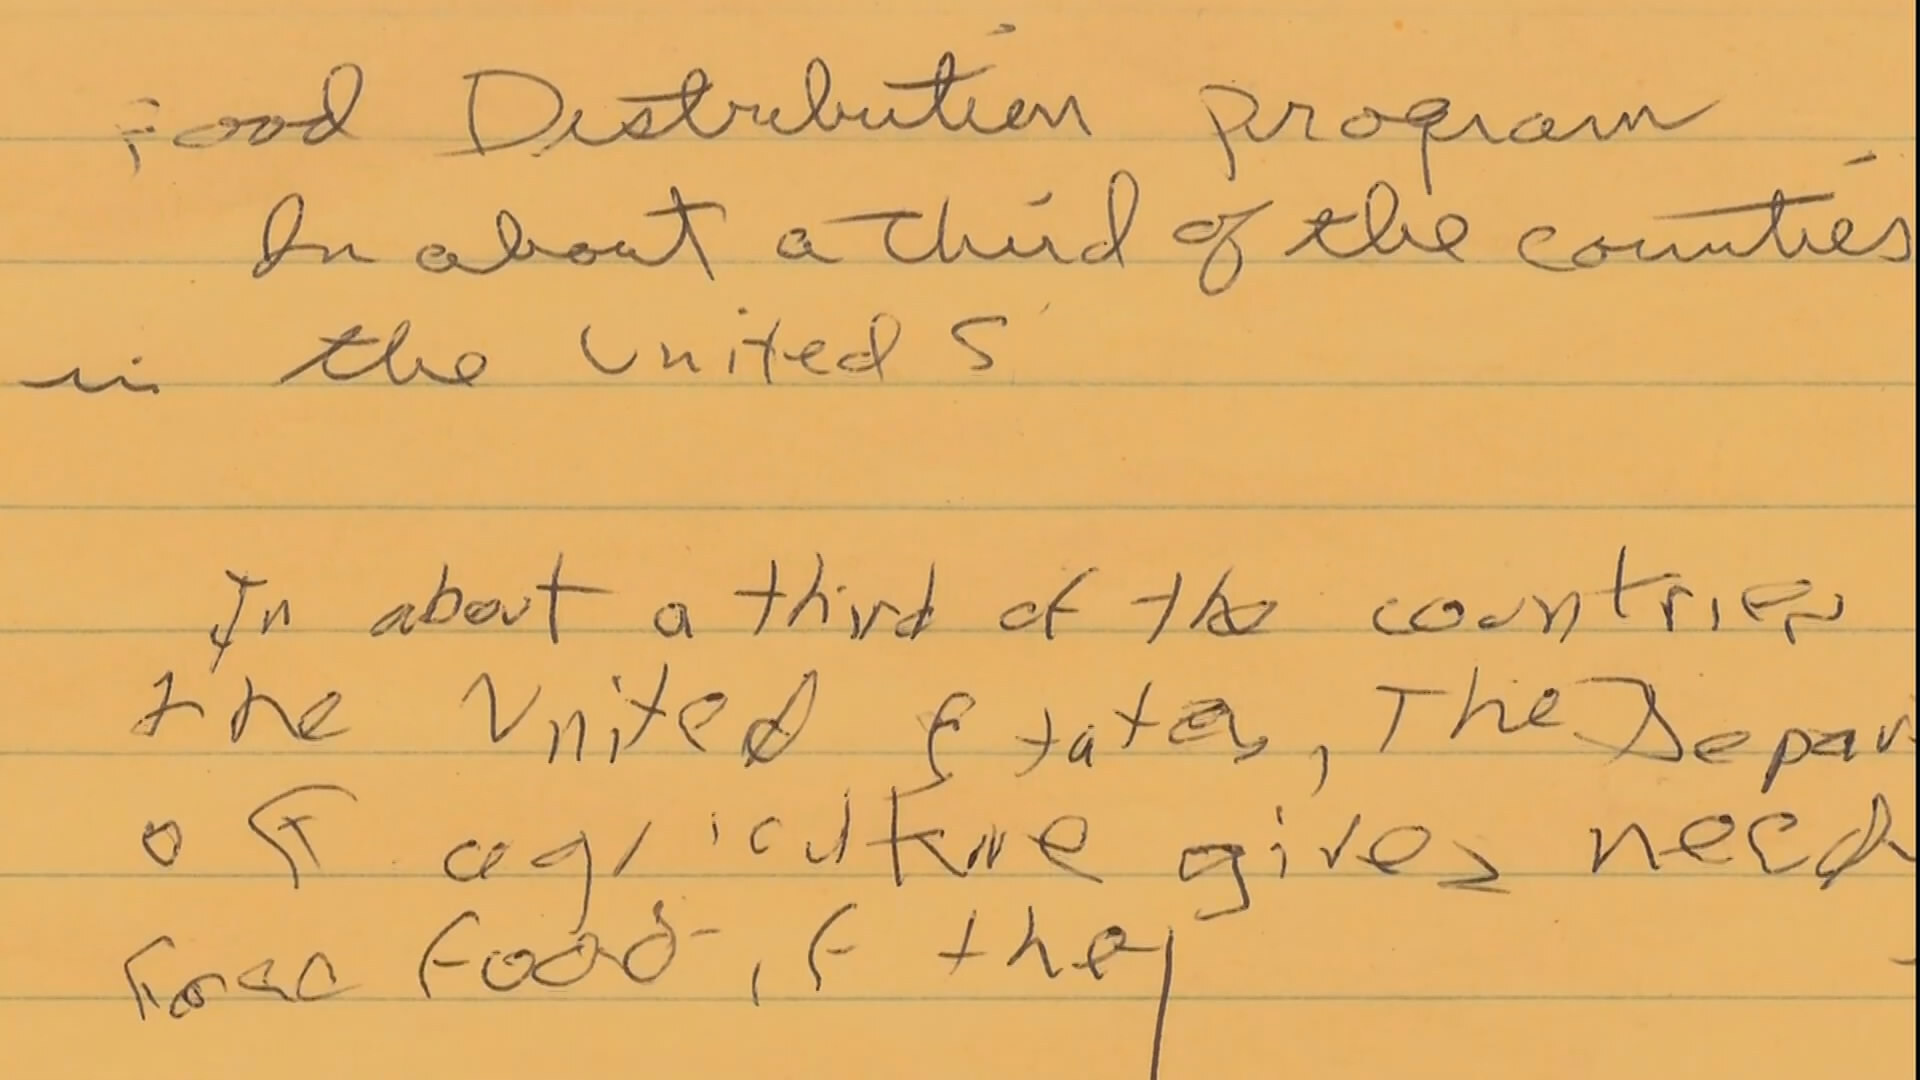 Food Distribution program
In about a third of the counties
in the United S
In about a third of the countries
the United States, The Depar
of agriculture gives need
food if they